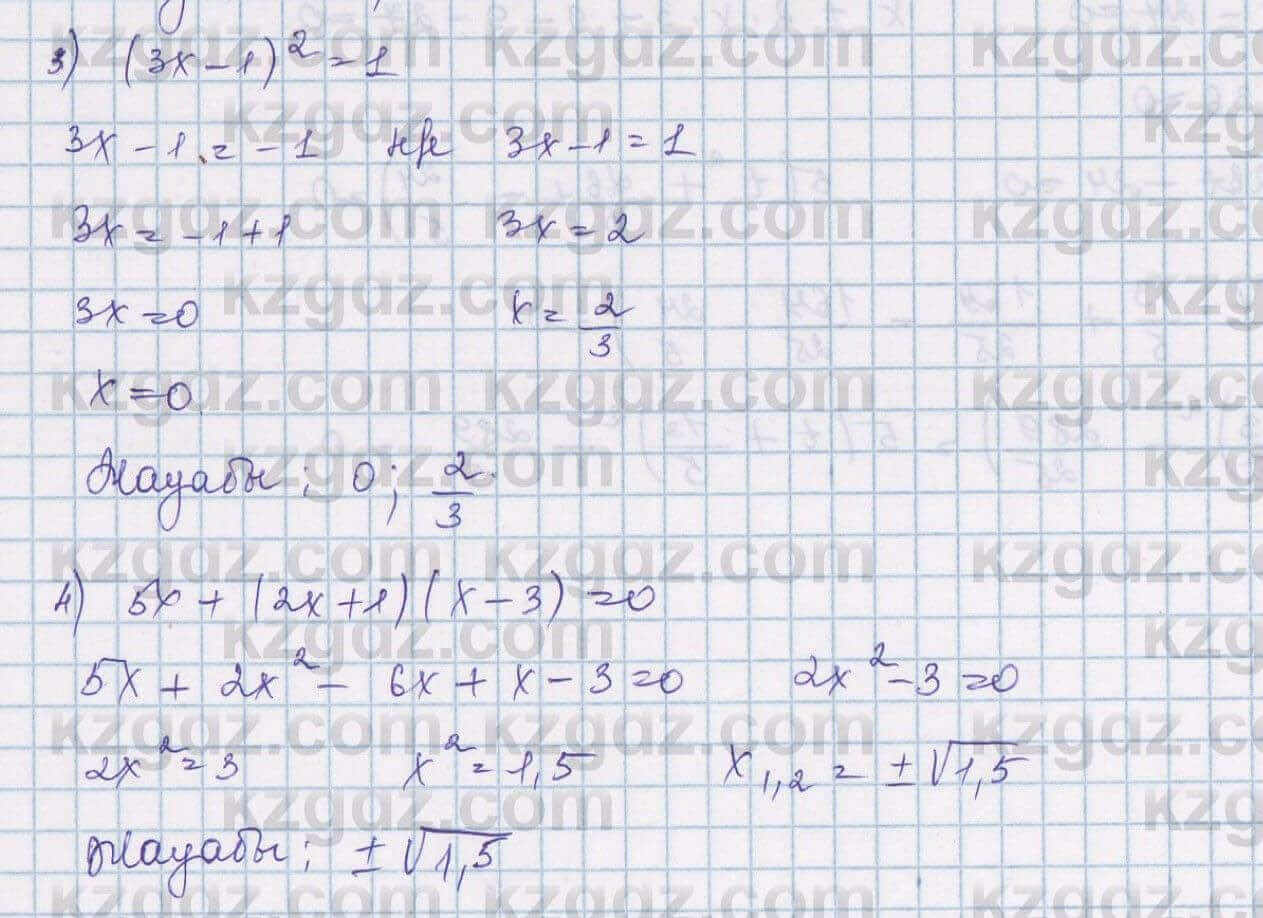 3) (3x-1)² = 1
3x-1 = -1 н/е 3x-1 = 1
3x = -1+1 3x = 2
3x = 0 x = 2/3
x = 0
Жауабы: 0; 2/3.
4) 5x + (2x+1)(x-3) = 0
5x + 2x² - 6x + x - 3 = 0 2x² - 3 = 0
2x² = 3 x² = 1,5 x₁,₂ = ±√1,5
Жауабы: ±√1,5
kzgdz.com